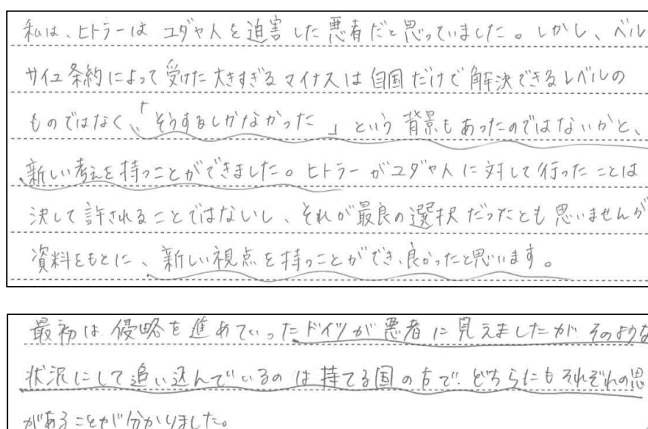 私は、ヒトラーは ユダヤ人を迫害した悪者だと思っていました。しかし、ベル
サイユ条約によって受けた大きすぎるマイナスは自国だけで解決できるレベルの
ものではなく、「そうするしかなかった」という背景もあったのではないかと、
新しい考えを持つことができました。ヒトラーがユダヤ人に対して行ったことは
決して許されることではないし、それが最良の選択だったとも思いませんが
資料をもとに、新しい視点を持つことができ、良かったと思います。
最初は侵略を進めていったドイツが悪者に見えましたが そのような
状況にして追い込んでいるのは持てる国の方で、どちらにもそれぞれの思
があることが分かりました。